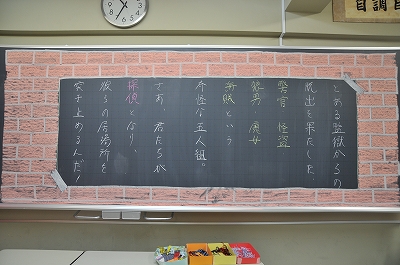 とある監獄からの
脱出を果たした、
警官 怪盗
狼男 魔女
海賊という
奇怪な五人組。
さあ、君たちが
探偵となり、
彼らの居場所を
突き止めるんだ!
自調自